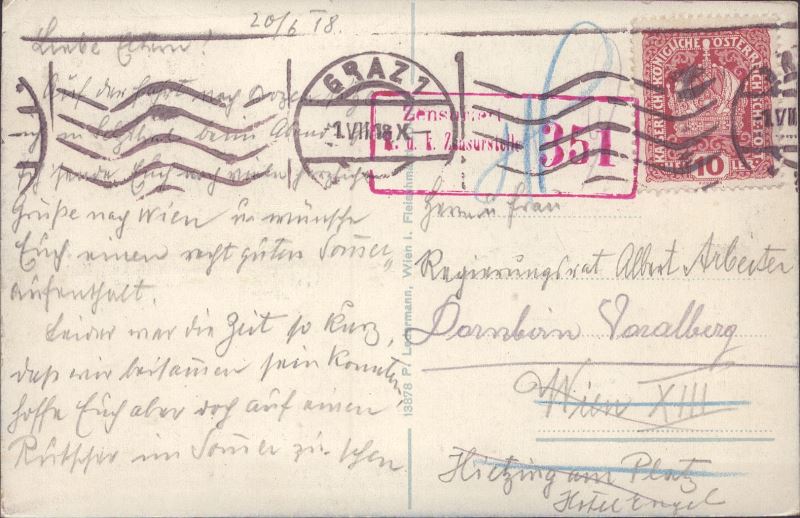 20/6 18.
Liebe Eltern!
Auf der Fahrt nach Bozen
beim
ich sende Euch noch viele herzliche
Grüße nach Wien u. wünsche
Euch einen recht guten Sommer„
aufenthalt.
Leider war die Zeit so kurz,
daß wir beisammen sein konnten
hoffe Euch aber doch auf einen
Rutscher im Sommer zu sehen
GRAZ 1
1.VII.18.X
Zensuriert
k. u. k. Zensurstelle
351
KAISERLICHE KÖNIGLICHE ÖSTERREICHISCHE POST
10
13878 Pr. Ledermann, Wien I. Fleischmarkt
Herrn u Frau
Regierungsrat Albert Arbeiter
Dornbirn Voralberg
Wien XIII
Hietzing am Platz
Hotel Engel